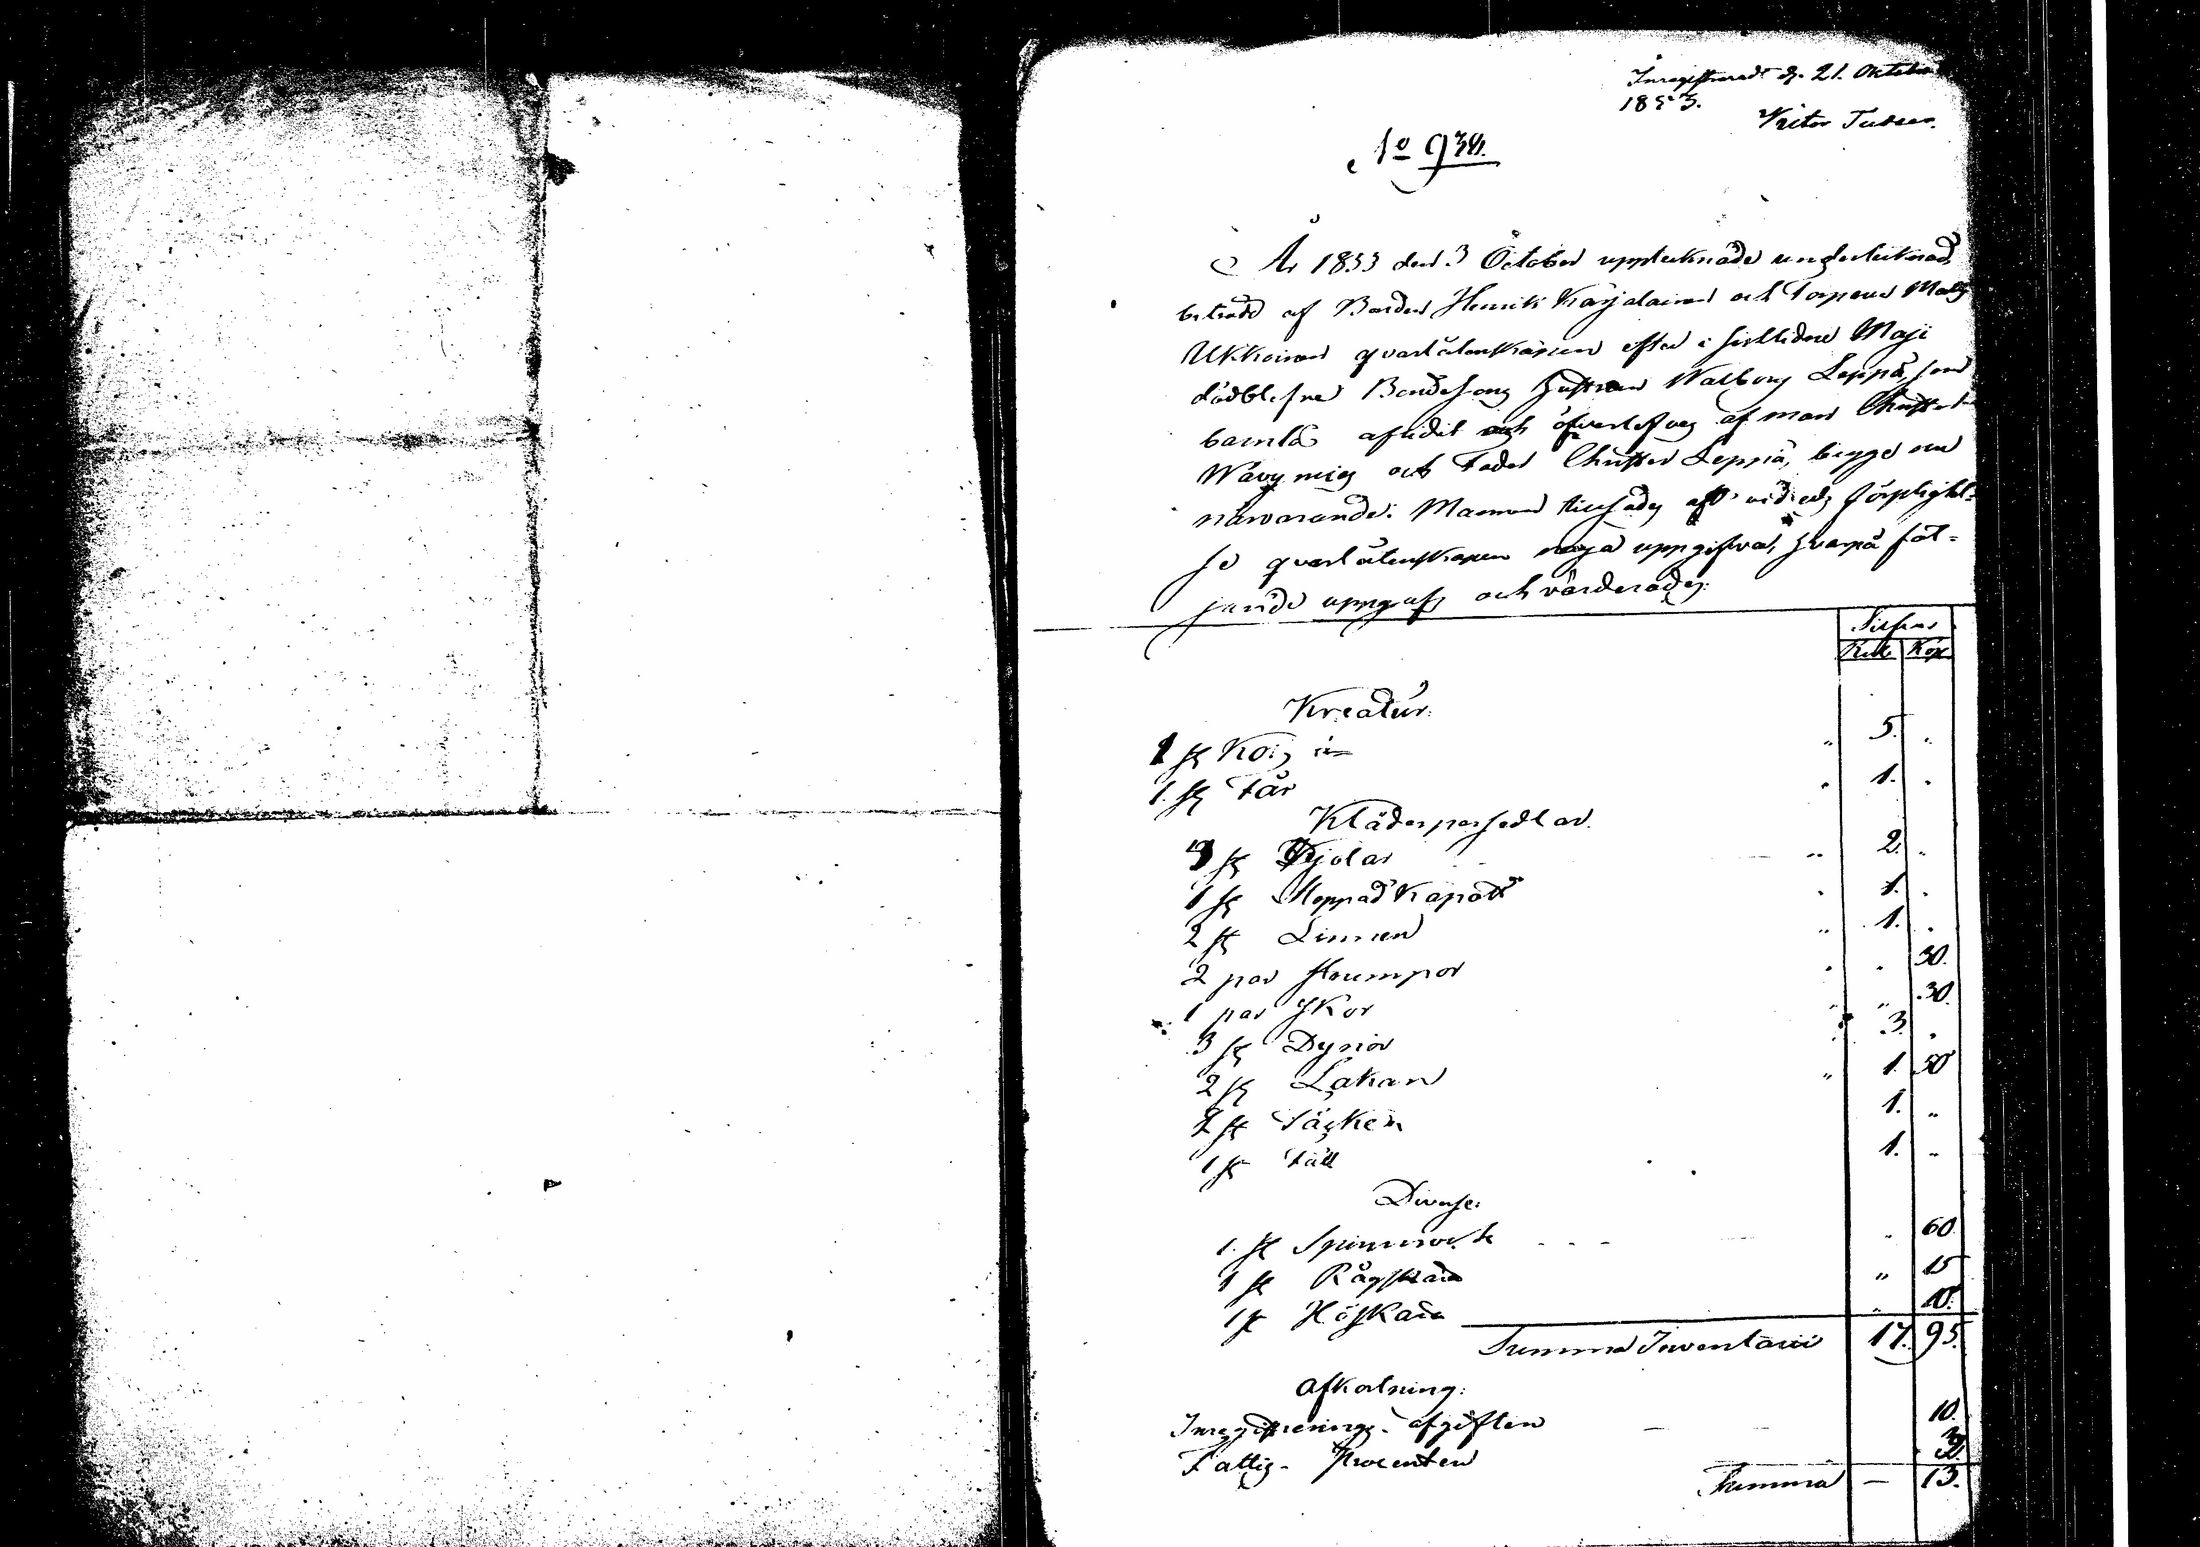 Inregistreradt d. 21. Oktober
1853.
Victor
No 934.
År 1853 den 3 October upptecknade undertecknad,
biträdd af Bonden Henrik Karjalainen och Torparen Matts
Ukkoinen qvarlåtenskapen efter i sistlidne Maji
dödblefne Bondesons hustrun Walborg Leppä, som
barnlös aflidit och öfverlefves af man Christer
och Fader Christer Leppä, begge nu
närvarande. Mannen tillsades att vid eds förpligtel-
se qvarlåtenskapen noga uppgifva, hvarpå föl-
jande uppgafs och värderades:
Silfver
Rub Kop
Kreatur.
1 st Ko, " 5. "
1. st Får " 1. "
Klädespersedlar.
3 st Kjolar " 2. "
1 st stoppad Kapott " 1. "
2 st Linnen " 1. "
2 par strumpor " " 30.
1 par skor " " 30.
3 st Dynor " 3. "
2 st Lakan " 1. 50
2 st Täcken 1. "
1 st Fäll 1. "
Diverse:
1. st Spinnrock - - - " 60.
1 st Rågskära " 15
1 st Höskära " 10.
Summa Inventarii 17. 95.
Afkortning:
Inregistrerings-afgiften — — 10.
Fattig-Procenten 3.
Summa — 13.